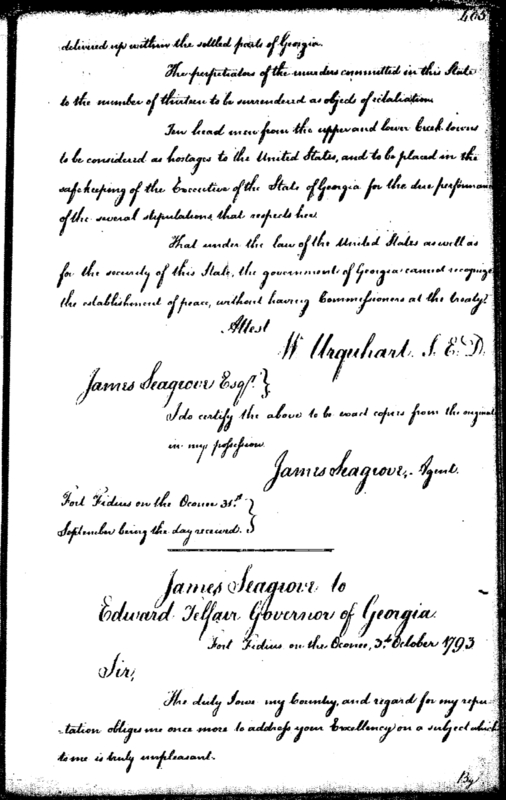 465
delivered up within the settled parts of Georgia.
The perpetrators of the murders committed in this State
to the number of thirteen to be surrendered as objects of retaliation.
Ten head men from the upper and lower Creek towns
to be considered as hostages to the United States, and to be placed in the
safe keeping of the Executive of the State of Georgia for the due performance
of the several stipulations that respects her.
That under the law of the United States as well as
for the security of this State, the government of Georgia cannot recognize
the establishment of peace, without having Commissioners at the treaty.
Attest
W Urquhart S. E. D.
James Seagrove Esqr. }
I do certify the above to be exact copies from the original
in my possession
James Seagrove, Agent.
Fort Fidius on the Oconee 31st }
September being the day received. }
James Seagrove to
Edward Telfair Governor of Georgia.
Fort Fidius on the Oconee, 3d October 1793
Sir,
The duty I owe my Country, and regard for my repu-
-tation obliges me once more to address your Excellency on a subject which
to me is truly unpleasant.
By